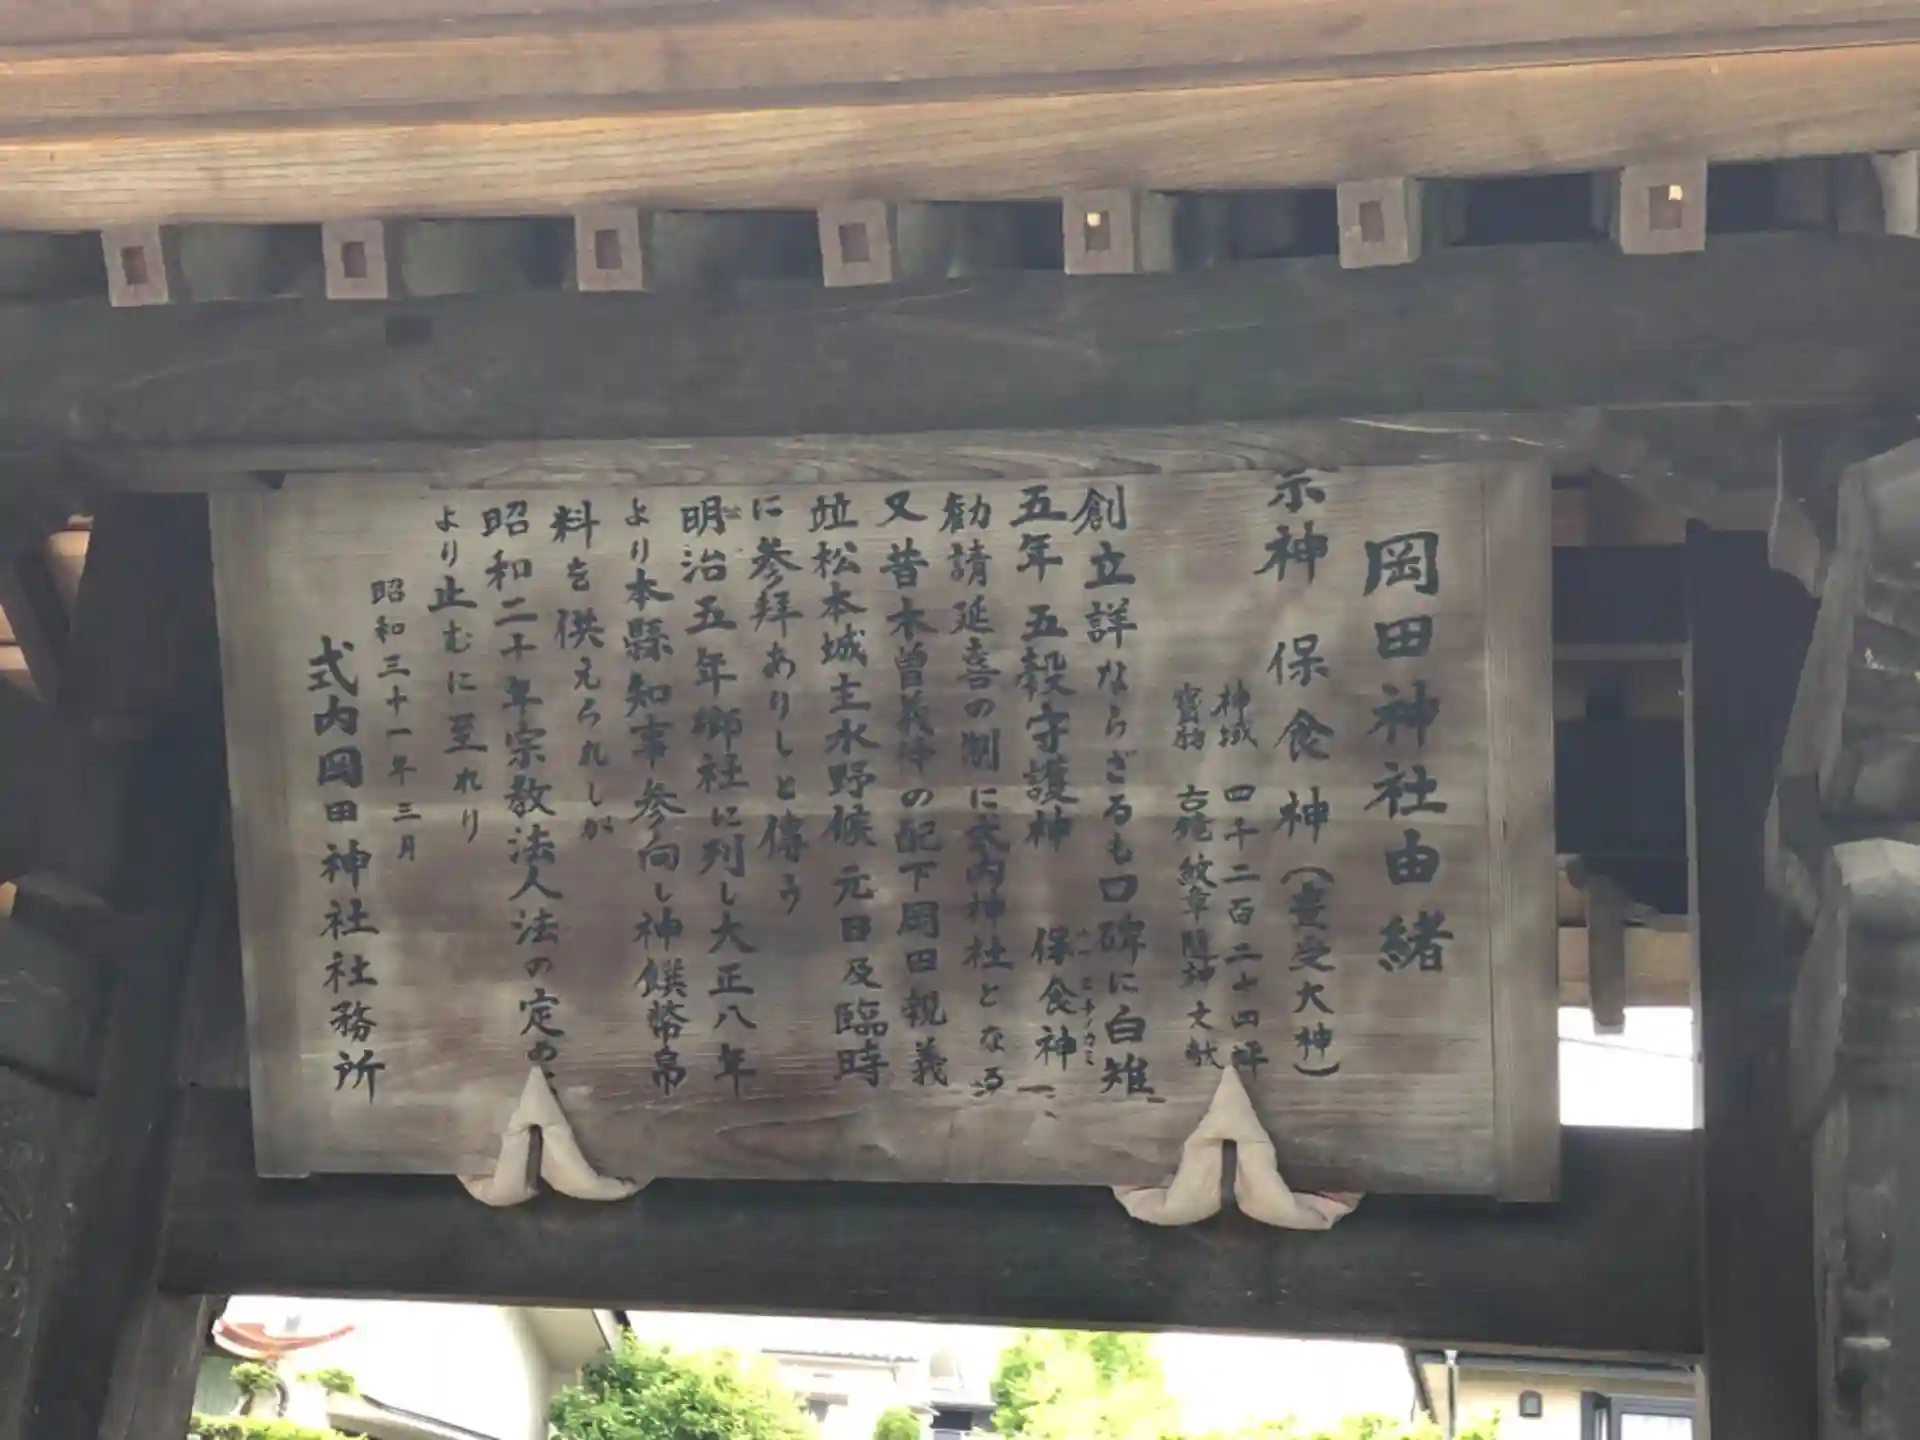 岡田神社由緒
祭神 保食神(豊受大神)
神域 四千二百二十四坪
寳物 古鏡紋章随神文献
創立詳ならざるも口碑に白雉
五年 五穀守護神 保食神
勧請延喜の制に式内神社となる
又昔木曽義仲の配下岡田親義
竝松本城主水野候元日及臨時
に参拜ありしと傳う
明治五年郷社に列し大正八年
より本縣知事参向し神饌幣帛
料を供えられしが
昭和二十年宗教法人法の定め
より止むに至れり
昭和三十一年三月
式内岡田神社社務所